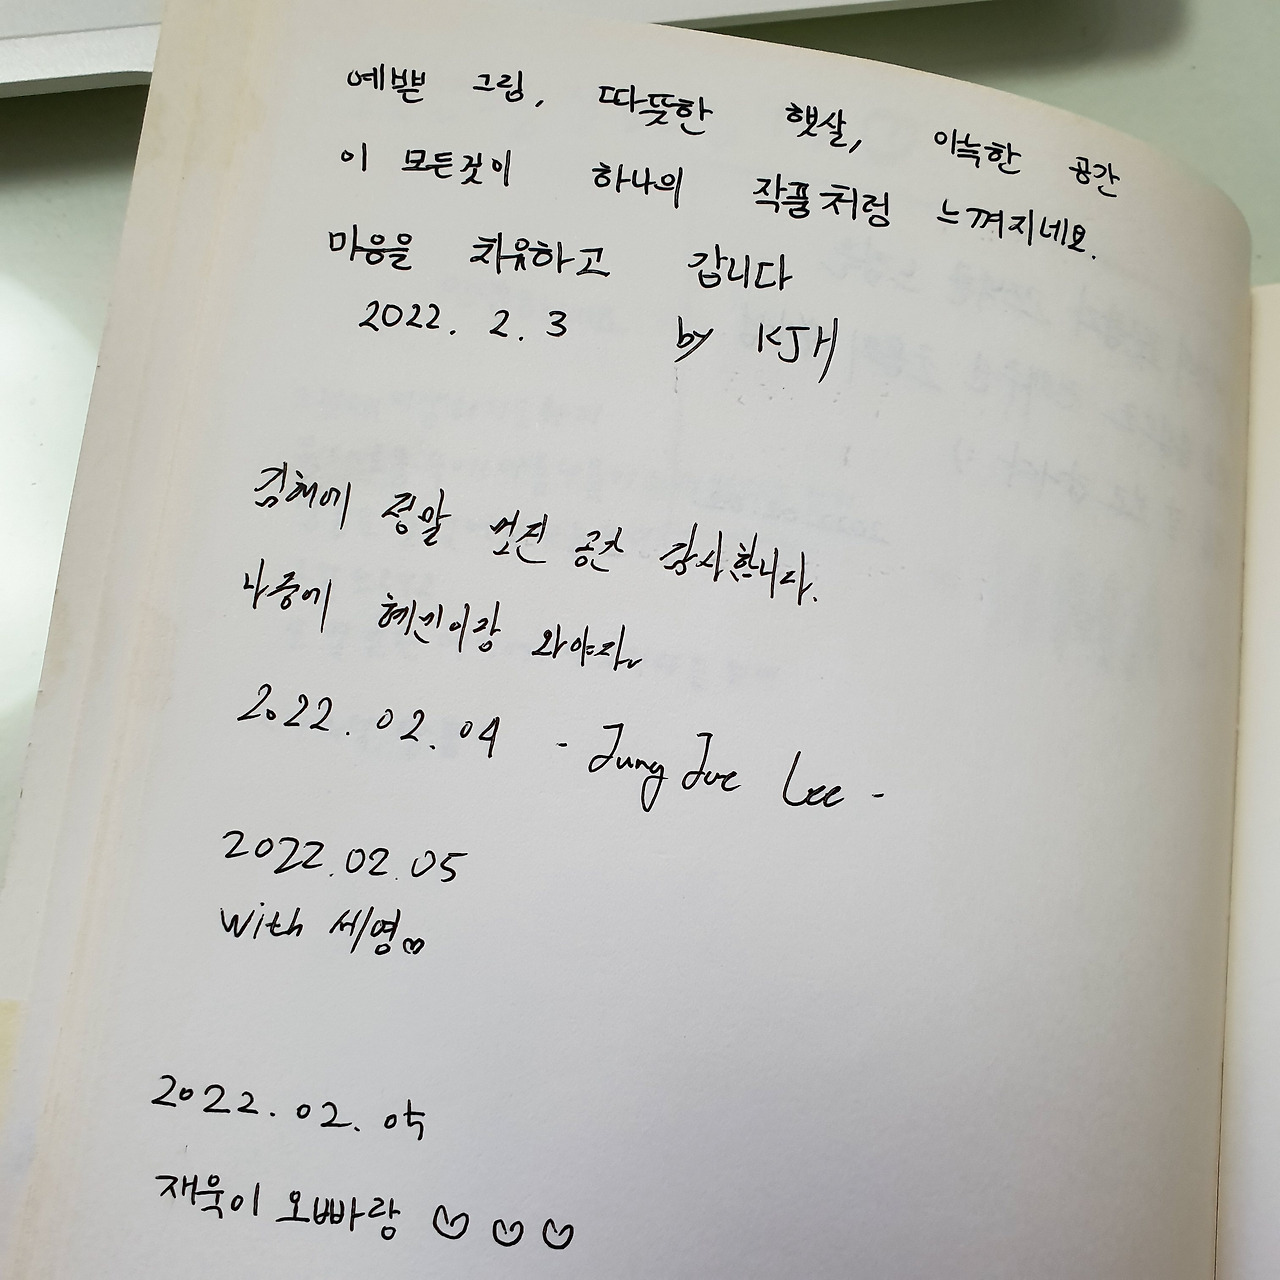 예쁜 그림, 따뜻한 햇살, 아늑한 공간
이 모든것이 하나의 작품처럼 느껴지네요.
마음을 치유하고 갑니다
2022. 2. 3 by KJH
김해에 정말 멋진 공간 감사합니다.
나중에 혜민이랑 와야지
2022. 02. 04 - Jung Jae Lee -
2022.02.05
With 세영♡
2022. 02. 05
재욱이 오빠랑 ♡ ♡ ♡